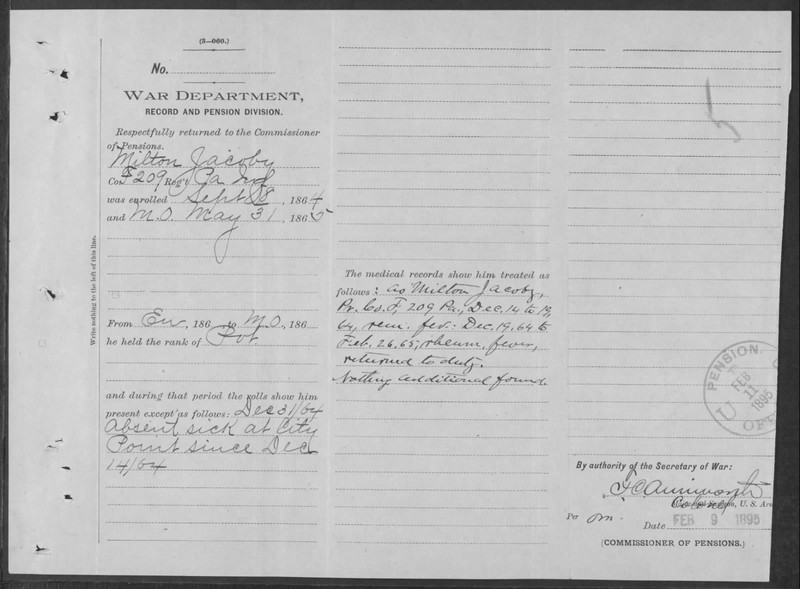 (3—060.)
No.
WAR DEPARTMENT,
RECORD AND PENSION DIVISION.
Respectfully returned to the Commissioner
of Pensions.
Milton Jacoby
Co. F 209 Reg't Pa Inf
was enrolled Sept 8, 1864
and M.O. May 31, 1865
From En, 186 to M.O., 186
he held the rank of Pvt.
and during that period the rolls show him
present except as follows: Dec 31/64
Absent sick at City
Point since Dec
14/64
Write nothing to the left of this line.
The medical records show him treated as
follows: as Milton Jacoby,
Pv. Co. F, 209 Pa., Dec. 14 to 19,
64, rem. fev.: Dec. 19, 64 to
Feb. 26, 65; rheum. fever,
returned to duty.
Nothing additional found.
PENSION
FEB
11
1895
U
OFF
By authority of the Secretary of War:
F C Ainsworth
Colonel U. S. Ar
Per om.
Date FEB 9 1895
(COMMISSIONER OF PENSIONS.)